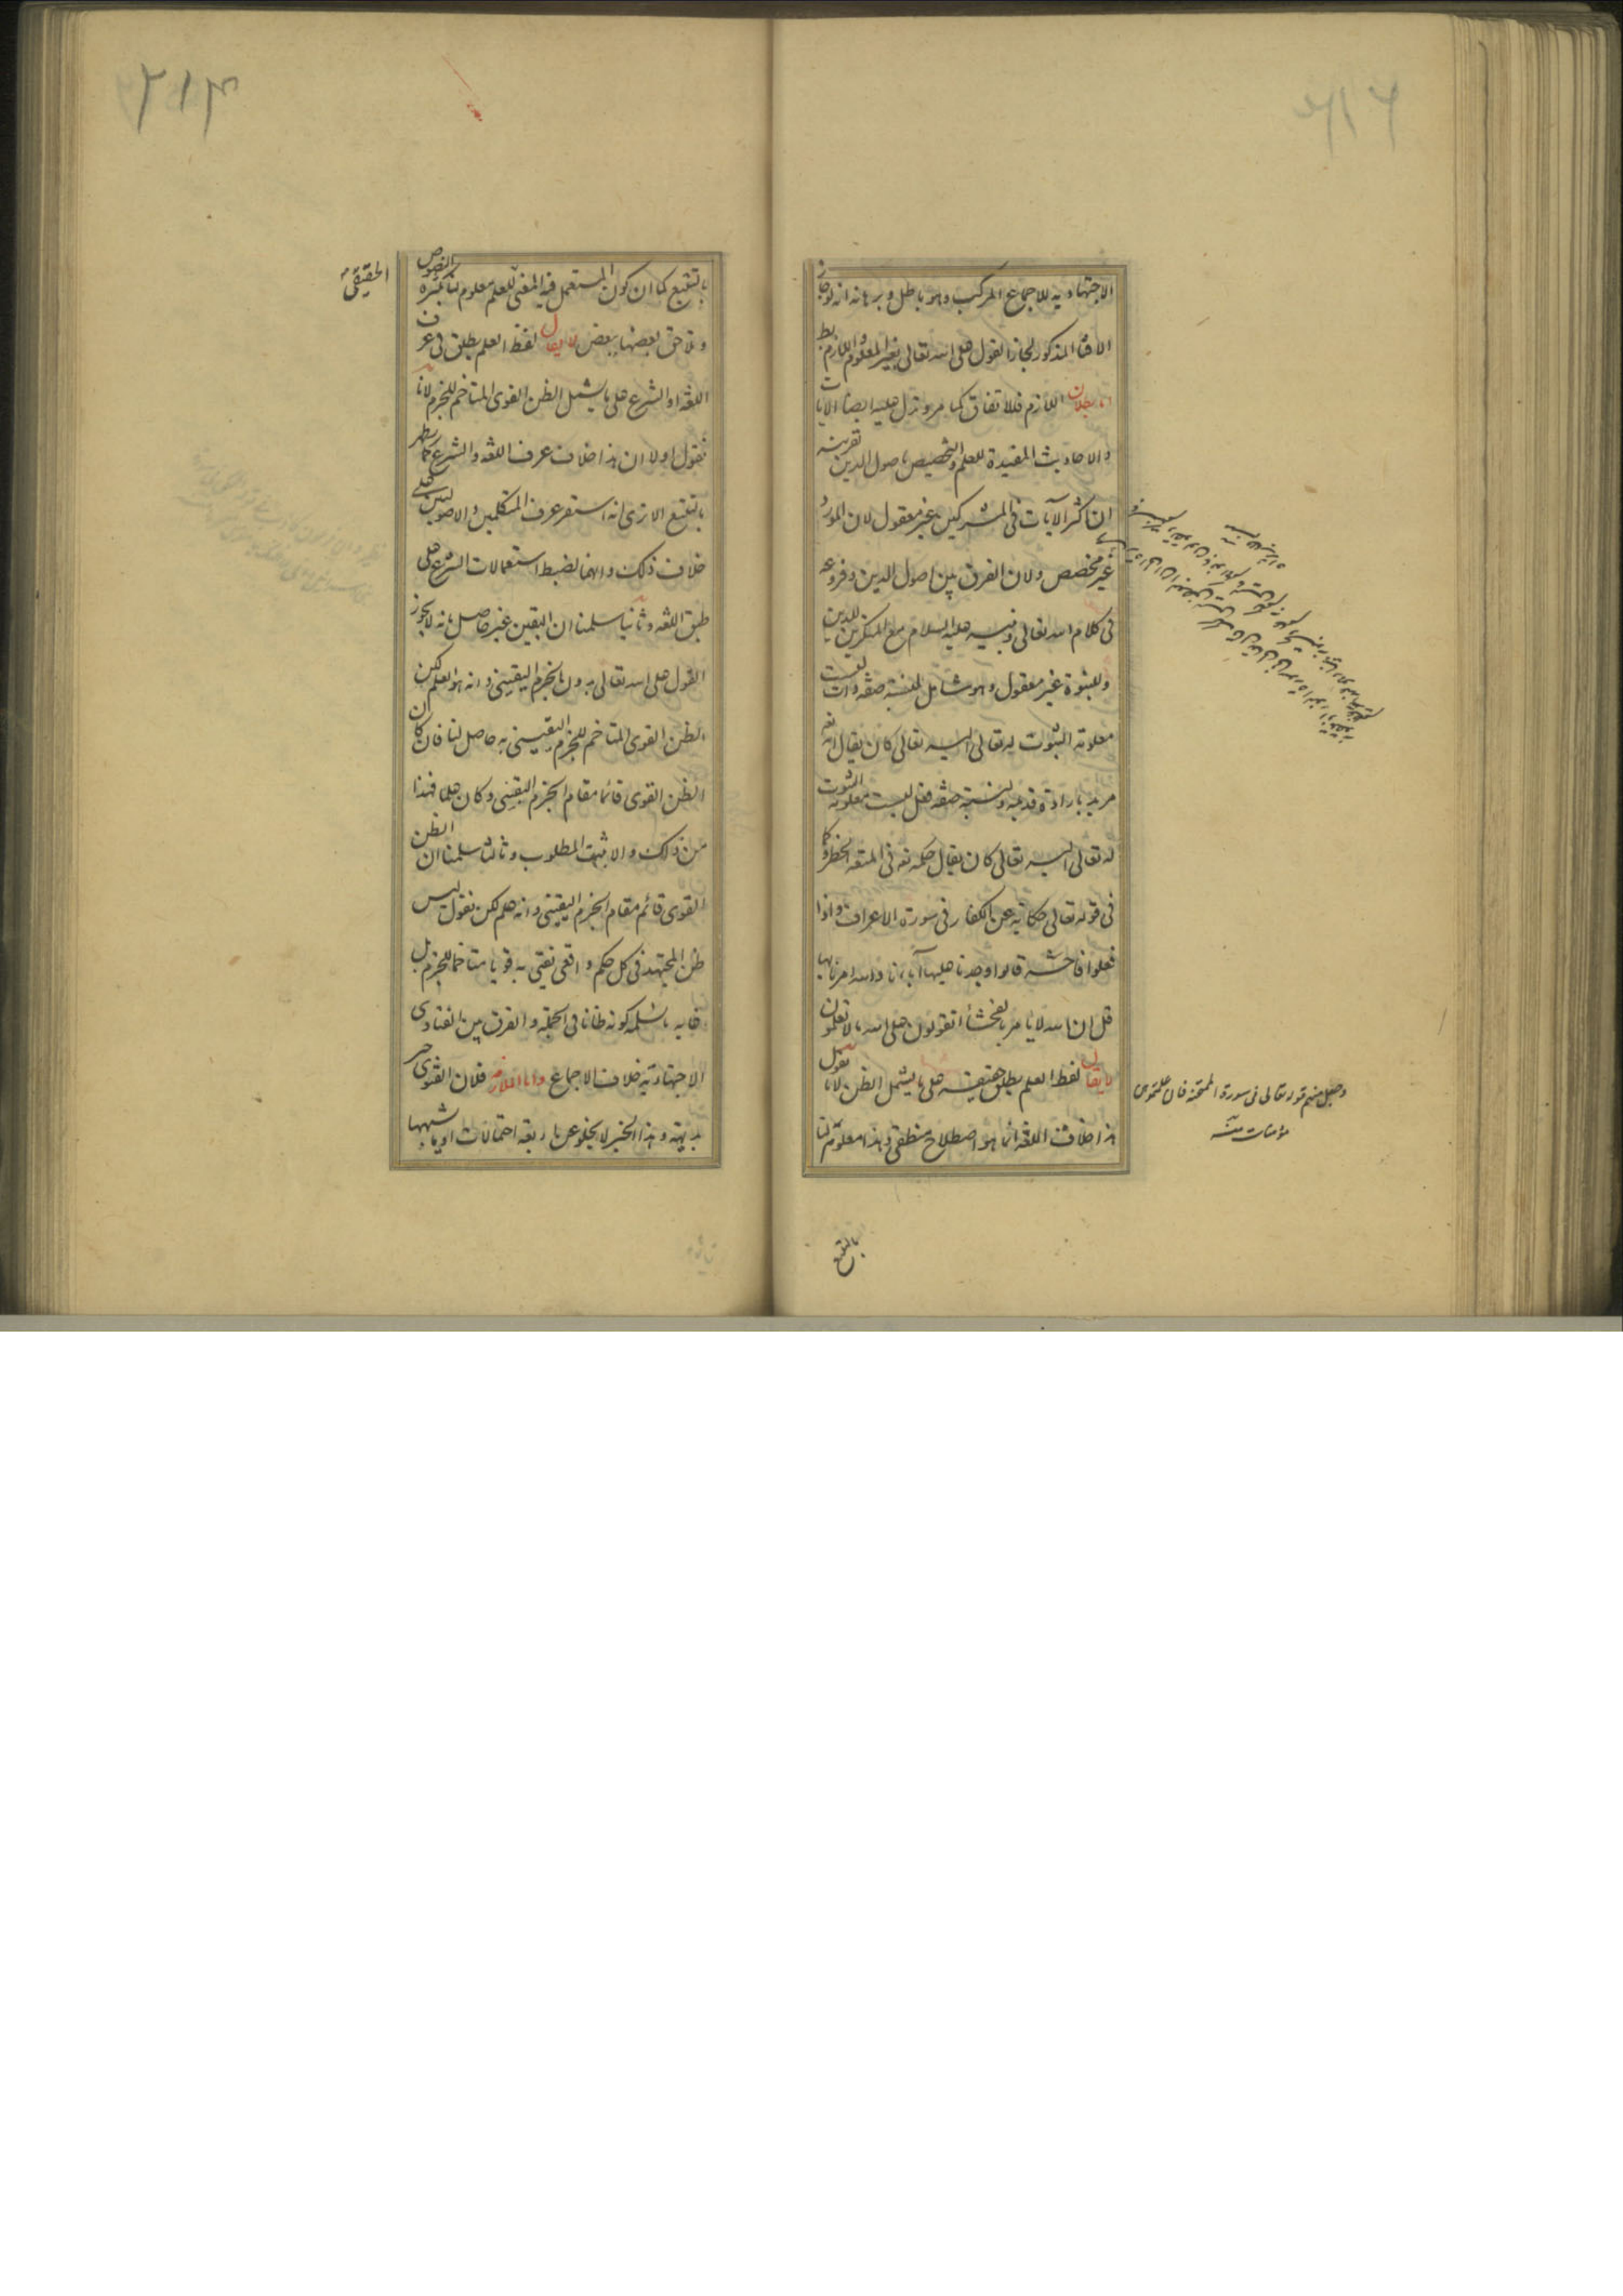 الاجتهادية للاجماع المركب وهو باطل وبرهانه انه لو جاز
الافتاء المذكور لجاز القول على الله تعالى بغير المعلوم واللازم بط
اما بطلان اللازم فلاتفاق كما مر وتدل عليه ايضا الآيات
والاحاديث المفيدة للعلم والتخصيص باصول الدين بقرينة
ان اكثر الآيات في المشركين غير معقول لان المورد
غير مخصص ولان الفرق بين اصول الدين وفروعه
في كلام الله تعالى ونبيه عليه السلام مع المنكرين للدين
وللنبوة غير معقول وهو شامل لنسبة صفة ذات ليست
معلومة الثبوت له تعالى اليه تعالى كان يقال انه تعالى
مريد بارادة قديمة ولنسبة صفة فعل ليست معلومة الثبوت
له تعالى اليه تعالى كان يقال حكمه تعالى في المتعة الحظر وكما
في قوله تعالى حكاية عن الكفار في سورة الاعراف واذا
فعلوا فاحشة قالوا وجدنا عليها آباءنا والله امرنا بها
قل ان الله لا يامر بالفحشاء اتقولون على الله ما لا تعلمون
لا يقال لفظ العلم يطلق حقيقة على ما يشمل الظن لانا نقول
هذا خلاف اللغة انما هو اصطلاح منطقي وهذا معلوم لنا
وجعل منهم قوله تعالى في سورة الممتحنة فان علمتموهن
مؤمنات منه
بالتتبع
بالتتبع كما ان كون المستعمل فيه المعنى للعلم معلوم لنا بكثرة النصوص
الحقيقي
وتلاحق بعضها ببعض لا يقال لفظ العلم يطلق في عرف
اللغة او الشرع على ما يشمل الظن القوي المتاخم للجزم لانا
نقول اولا ان هذا خلاف عرف اللغة والشرع كما يظهر
بالتتبع الا ترى انه استقر عرف المتكلمين والاصوليين على
خلاف ذلك وانما نضبط استعمالات الشرع على
طبق اللغة وثانيا سلمنا ان اليقين غير حاصل بانه لا يجوز
القول على الله تعالى بدون الجزم اليقيني وانه هو العلم لكن
الظن القوي المتاخم للجزم اليقيني به حاصل لنا فان كان
الظن القوي قائما مقام الجزم اليقيني وكان علما فهذا
من ذلك والا ثبت المطلوب وثالثا سلمنا ان الظن
القوي قائم مقام الجزم اليقيني وانه علم لكن نقول ليس
ظن المجتهد في كل حكم واقعي يفتي به قويا متاخما للجزم بل
غاية ما نسلمه كونه ظانا في الجملة والفرق بين الفتاوى
الاجتهادية خلاف الاجماع واما الملازمة فلان الفتوى خبر
بديهة وهذا الخبر لا يخلو عن اربعة احتمالات او ما يشبهها